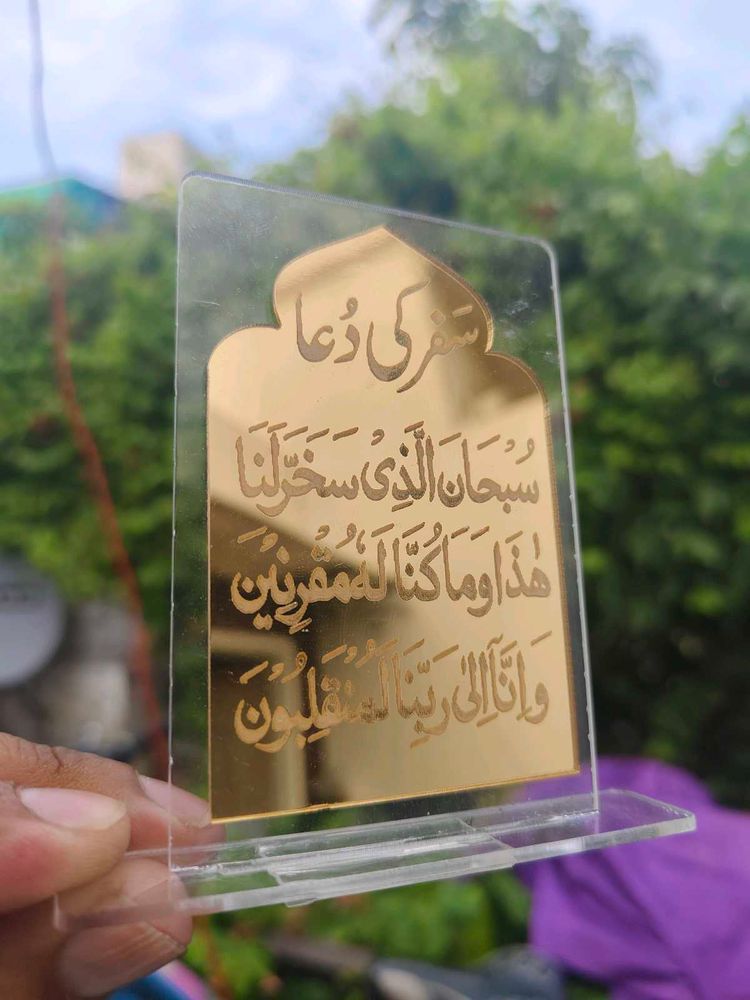 سَفر کی دُعا
سُبْحَانَ الَّذِیْ سَخَّرَ لَنَا
هٰذَا وَمَا كُنَّا لَهٗ مُقْرِنِیْنَ
وَاِنَّآ اِلٰی رَبِّنَا لَمُنْقَلِبُوْنَ